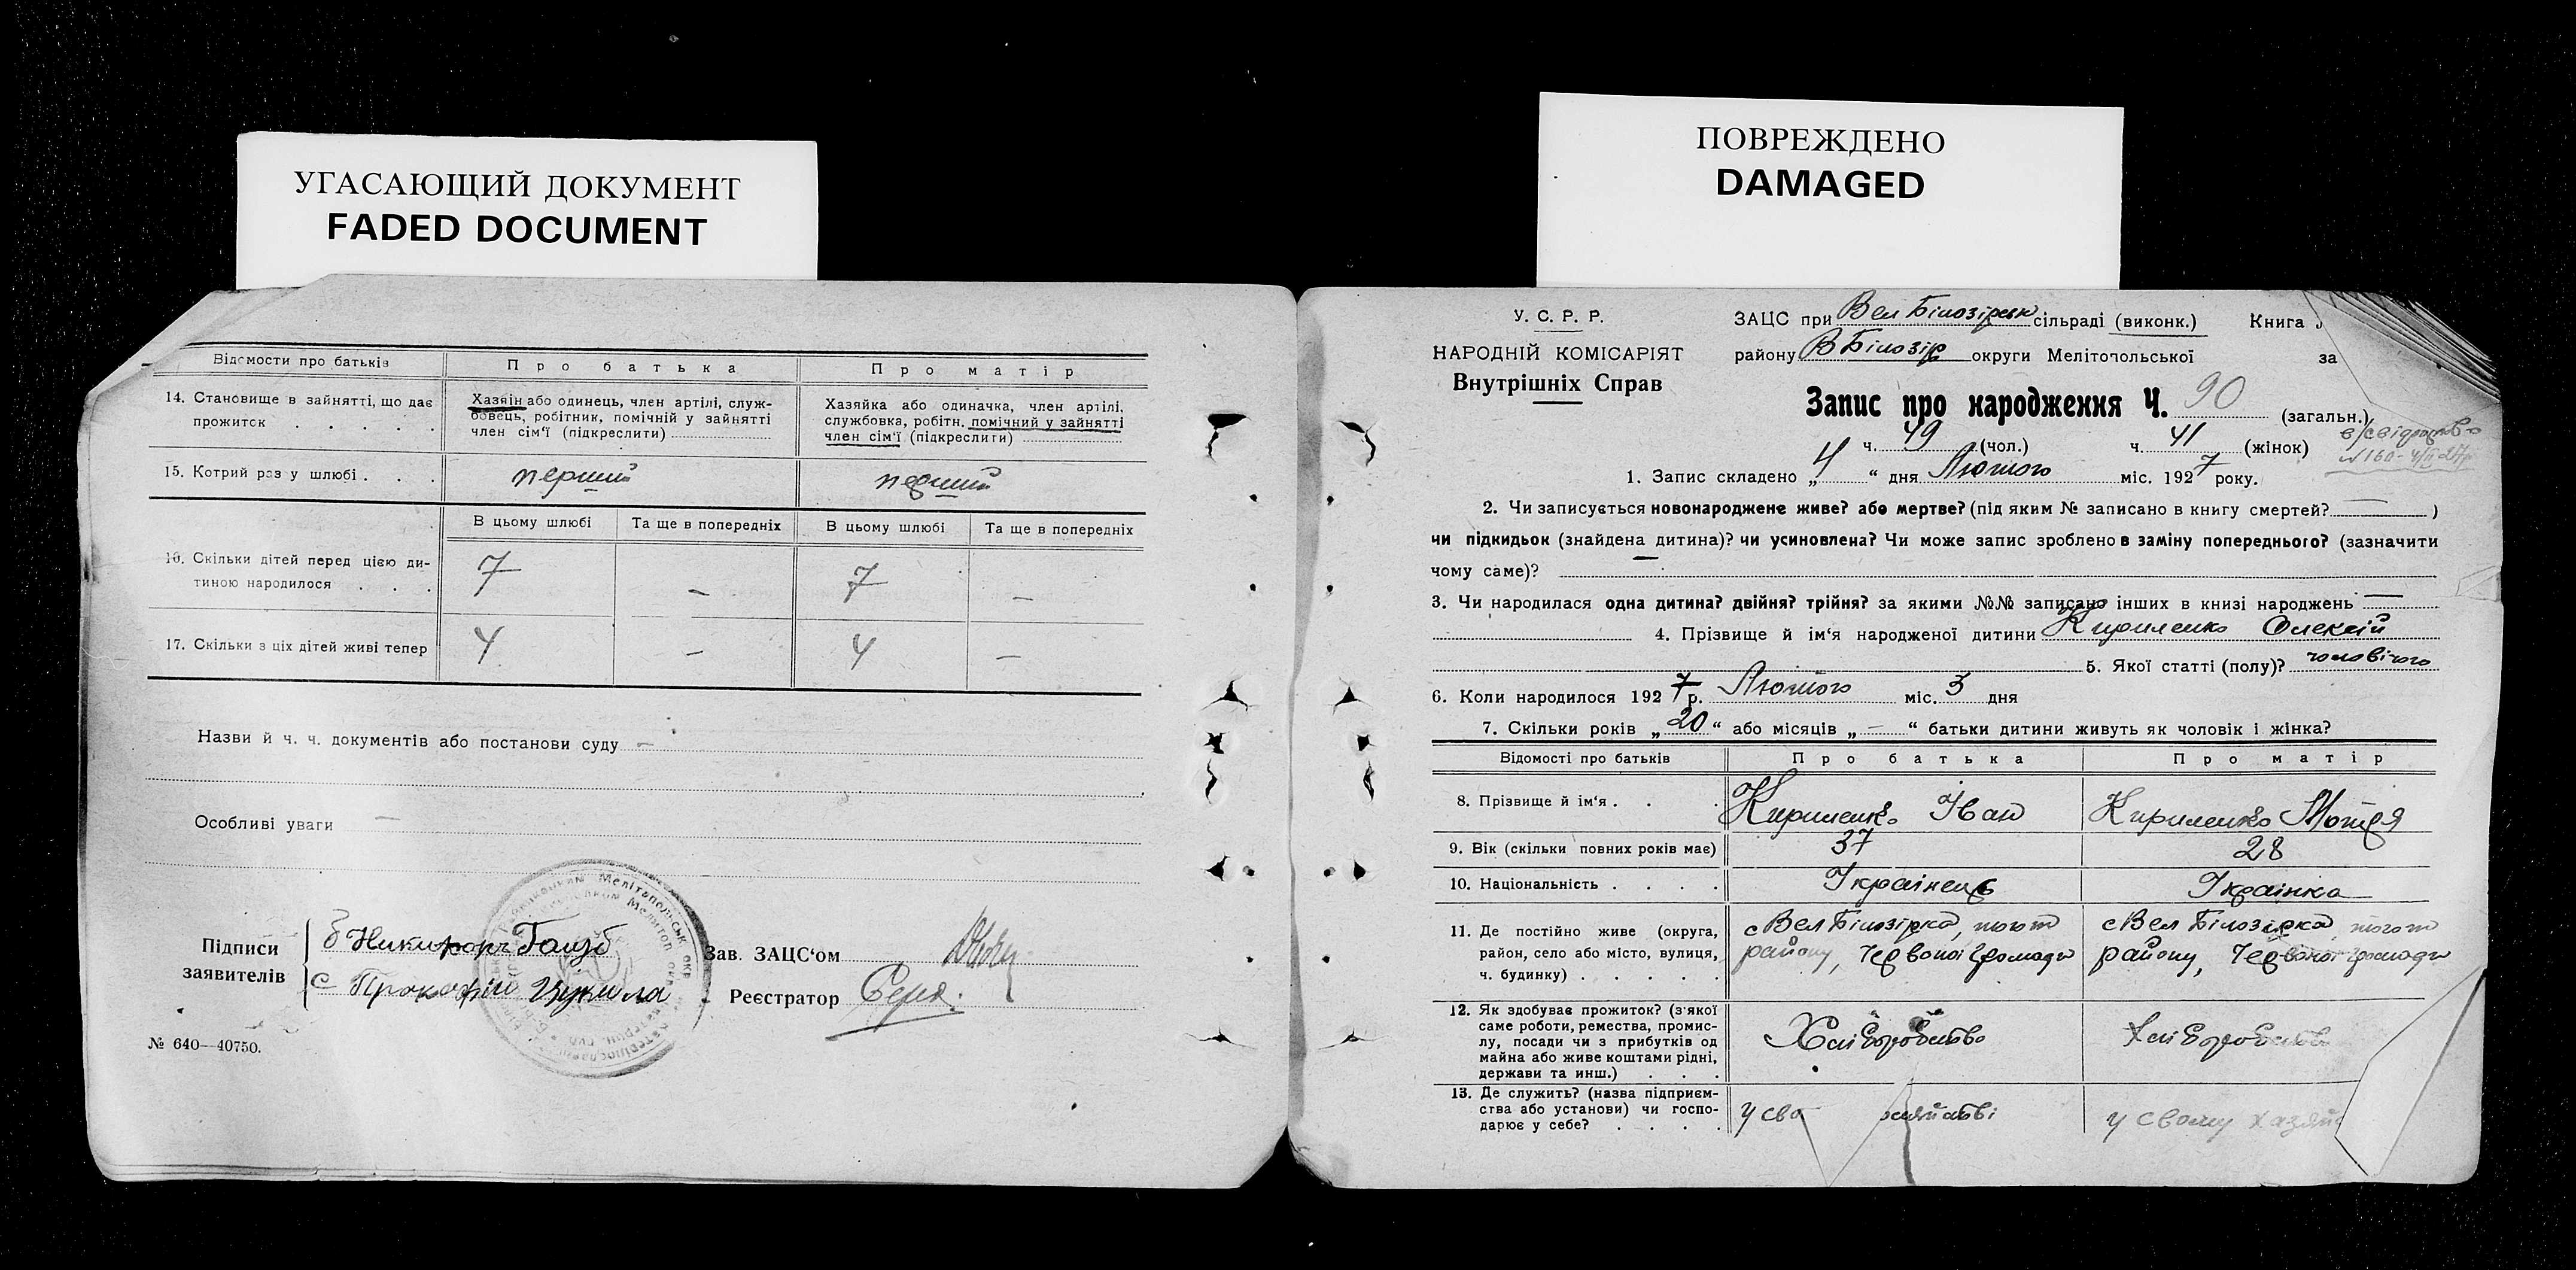 УГАСАЮЩИЙ ДОКУМЕНТ
FADED DOCUMENT
Відомости про батьків
Про батька
Про матір
14. Становище в зайнятті, що дає
прожиток . . . . .
Хазяін або одинець, член артілі, служ-
бовець, робітник, помічній у зайнятті
член сім'ї (підкреслити)
Хазяйка або одиначка, член артілі,
службовка, робітн. помічний у зайнятті
член сім'ї (підкреслити)
15. Котрий раз у шлюбі . . .
перший
перший
В цьому шлюбі
Та ще в попередніх
В цьому шлюбі
Та ще в попередніх
16. Скільки дітей перед цією ди-
тиною народилося . . .
7
—
7
—
17. Скільки з ціх дітей живі тепер
4
—
4
—
Назви й ч. ч. документів або постанови суду —
Особливі уваги —
Підписи
заявителів
Никифоръ
Прокофій
Зав. ЗАЦС'ом
Реєстратор
№ 640—40750.
ПОВРЕЖДЕНО
DAMAGED
У. С. Р. Р.
НАРОДНІЙ КОМІСАРІЯТ
Внутрішніх Справ
ЗАЦС при Вел Білозірськ сільраді (виконк.) Книга
району В Білозір округи Мелітопольської за
Запис про народження Ч. 90 (загальн.)
ч. 49 (чол.) ч. 41 (жінок)
1. Запис складено „ 4 “ дня Лютого міс. 1927 року.
2. Чи записується новонароджене живе? або мертве? (під яким № записано в книгу смертей? — )
чи підкидьок (знайдена дитина)? чи усиновлена? Чи може запис зроблено в заміну попереднього? (зазначити
чому саме)? —
3. Чи народилася одна дитина? двійня? трійня? за якими №№ записано інших в книзі народжень —
4. Прізвище й ім'я народженої дитини Кириленко Олексій
5. Якої статті (полу)? чоловічого
6. Коли народилося 1927 р. Лютого міс. 3 дня
7. Скільки років „ 20 “ або місяців „ — “ батьки дитини живуть як чоловік і жінка?
Відомості про батьків
Про батька
Про матір
8. Прізвище й ім'я . . .
Кириленко Іван
Кириленко Мотря
9. Вік (скільки повних років має)
37
28
10. Національність . . . .
Українець
Українка
11. Де постійно живе (округа,
район, село або місто, вулиця,
ч. будинку) . . . . .
с Вел Білозірка, того ж
району, Червоної громади
с Вел Білозірка, того ж
району, Червоної громади
12. Як здобуває прожиток? (з'якої
саме роботи, ремества, промис-
лу, посади чи з прибутків од
майна або живе коштами рідні,
держави та инш.) . . .
Хліборобство
Хліборобство
13. Де служить? (назва підприєм-
ства або установи) чи госпо-
дарює у себе? . . . .
у сво
у свому хазяйс